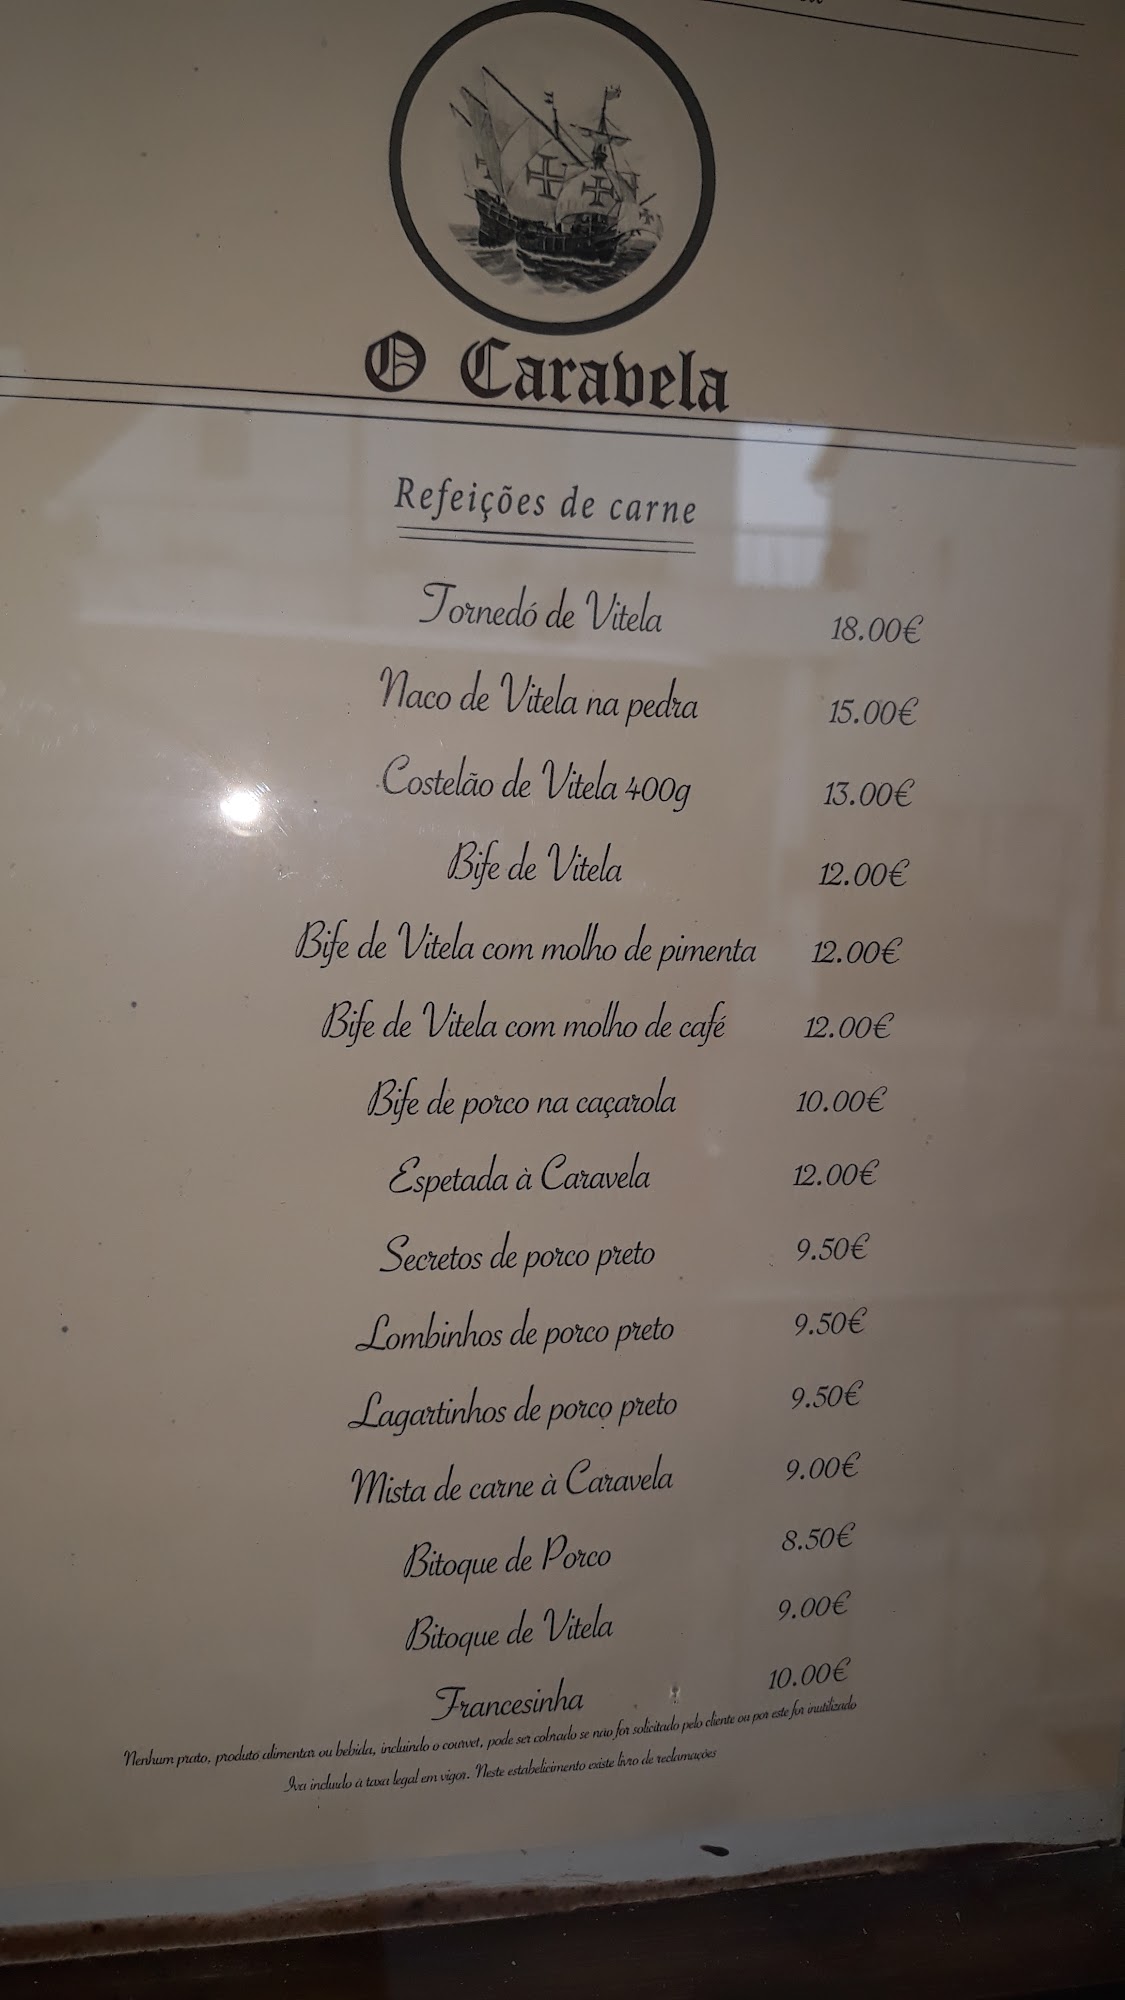 O Caravela
Refeições de carne
Tornedó de Vitela 18.00€
Naco de Vitela na pedra 15.00€
Costelão de Vitela 400g 13.00€
Bife de Vitela 12.00€
Bife de Vitela com molho de pimenta 12.00€
Bife de Vitela com molho de café 12.00€
Bife de porco na caçarola 10.00€
Espetada à Caravela 12.00€
Secretos de porco preto 9.50€
Lombinhos de porco preto 9.50€
Lagartinhos de porco preto 9.50€
Mista de carne à Caravela 9.00€
Bitoque de Porco 8.50€
Bitoque de Vitela 9.00€
Francesinha 10.00€
Nenhum prato, produto alimentar ou bebida, incluindo o couvet, pode ser cobrado se não for solicitado pelo cliente ou por este for inutilizado
Iva incluido à taxa legal em vigor. Neste estabelicimento existe livro de reclamações